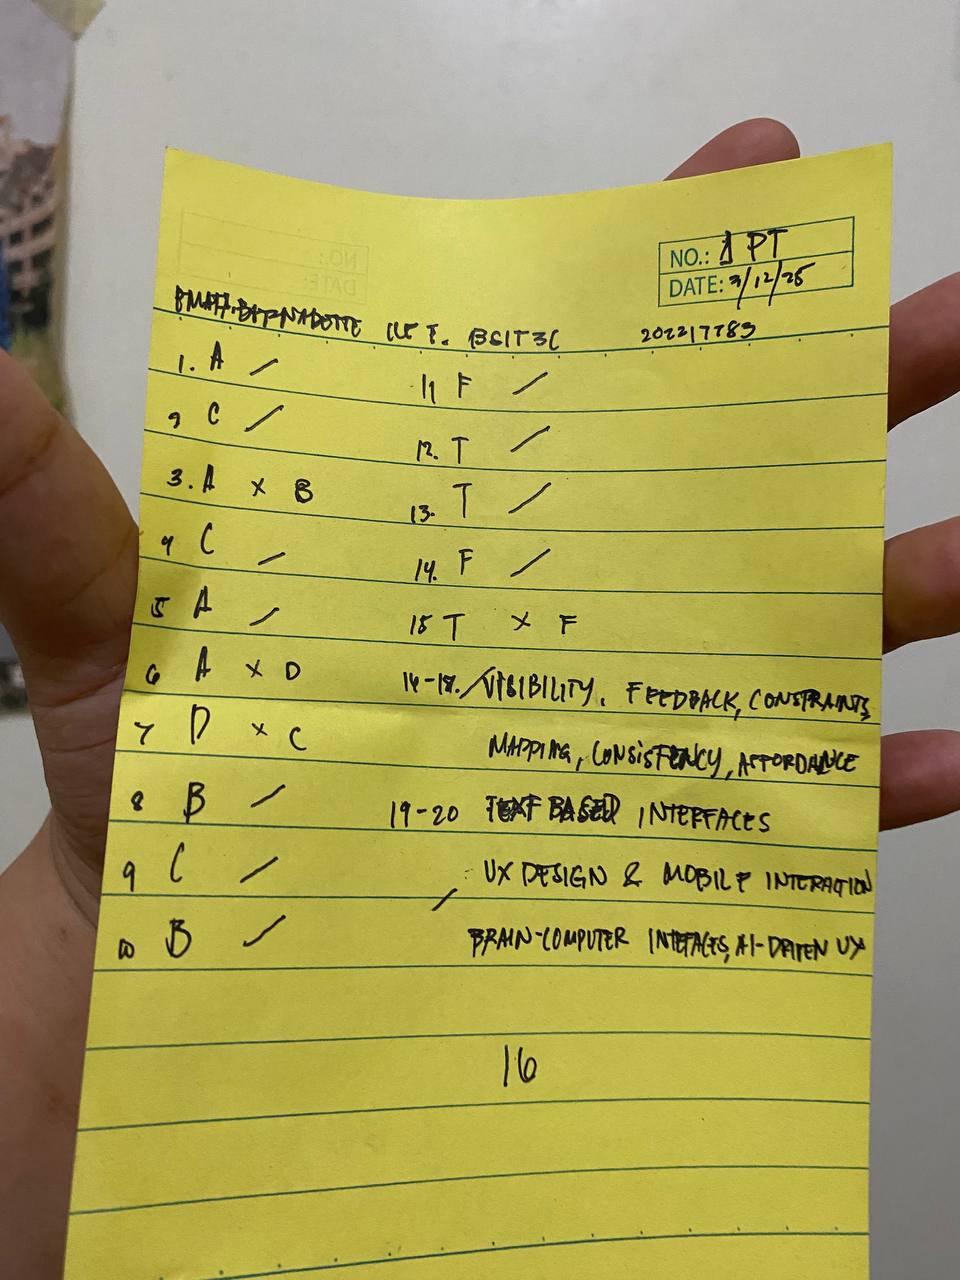 NO.: 1 PT
DATE: 3/12/25
BSIT 3C 202217783
1. A /
2 C /
3. A x B
4 C /
5 A /
6 A x D
7 D x C
8 B /
9 C /
10 B /
11 F /
12. T /
13. T /
14. F /
15 T x F
16-18. / VISIBILITY, FEEDBACK, CONSTRAINTS,
MAPPING, CONSISTENCY, AFFORDANCE
19-20 TEXT BASED INTERFACES
UX DESIGN & MOBILE INTERACTION
/ BRAIN-COMPUTER INTEFACES, AI-DRIVEN UX
16